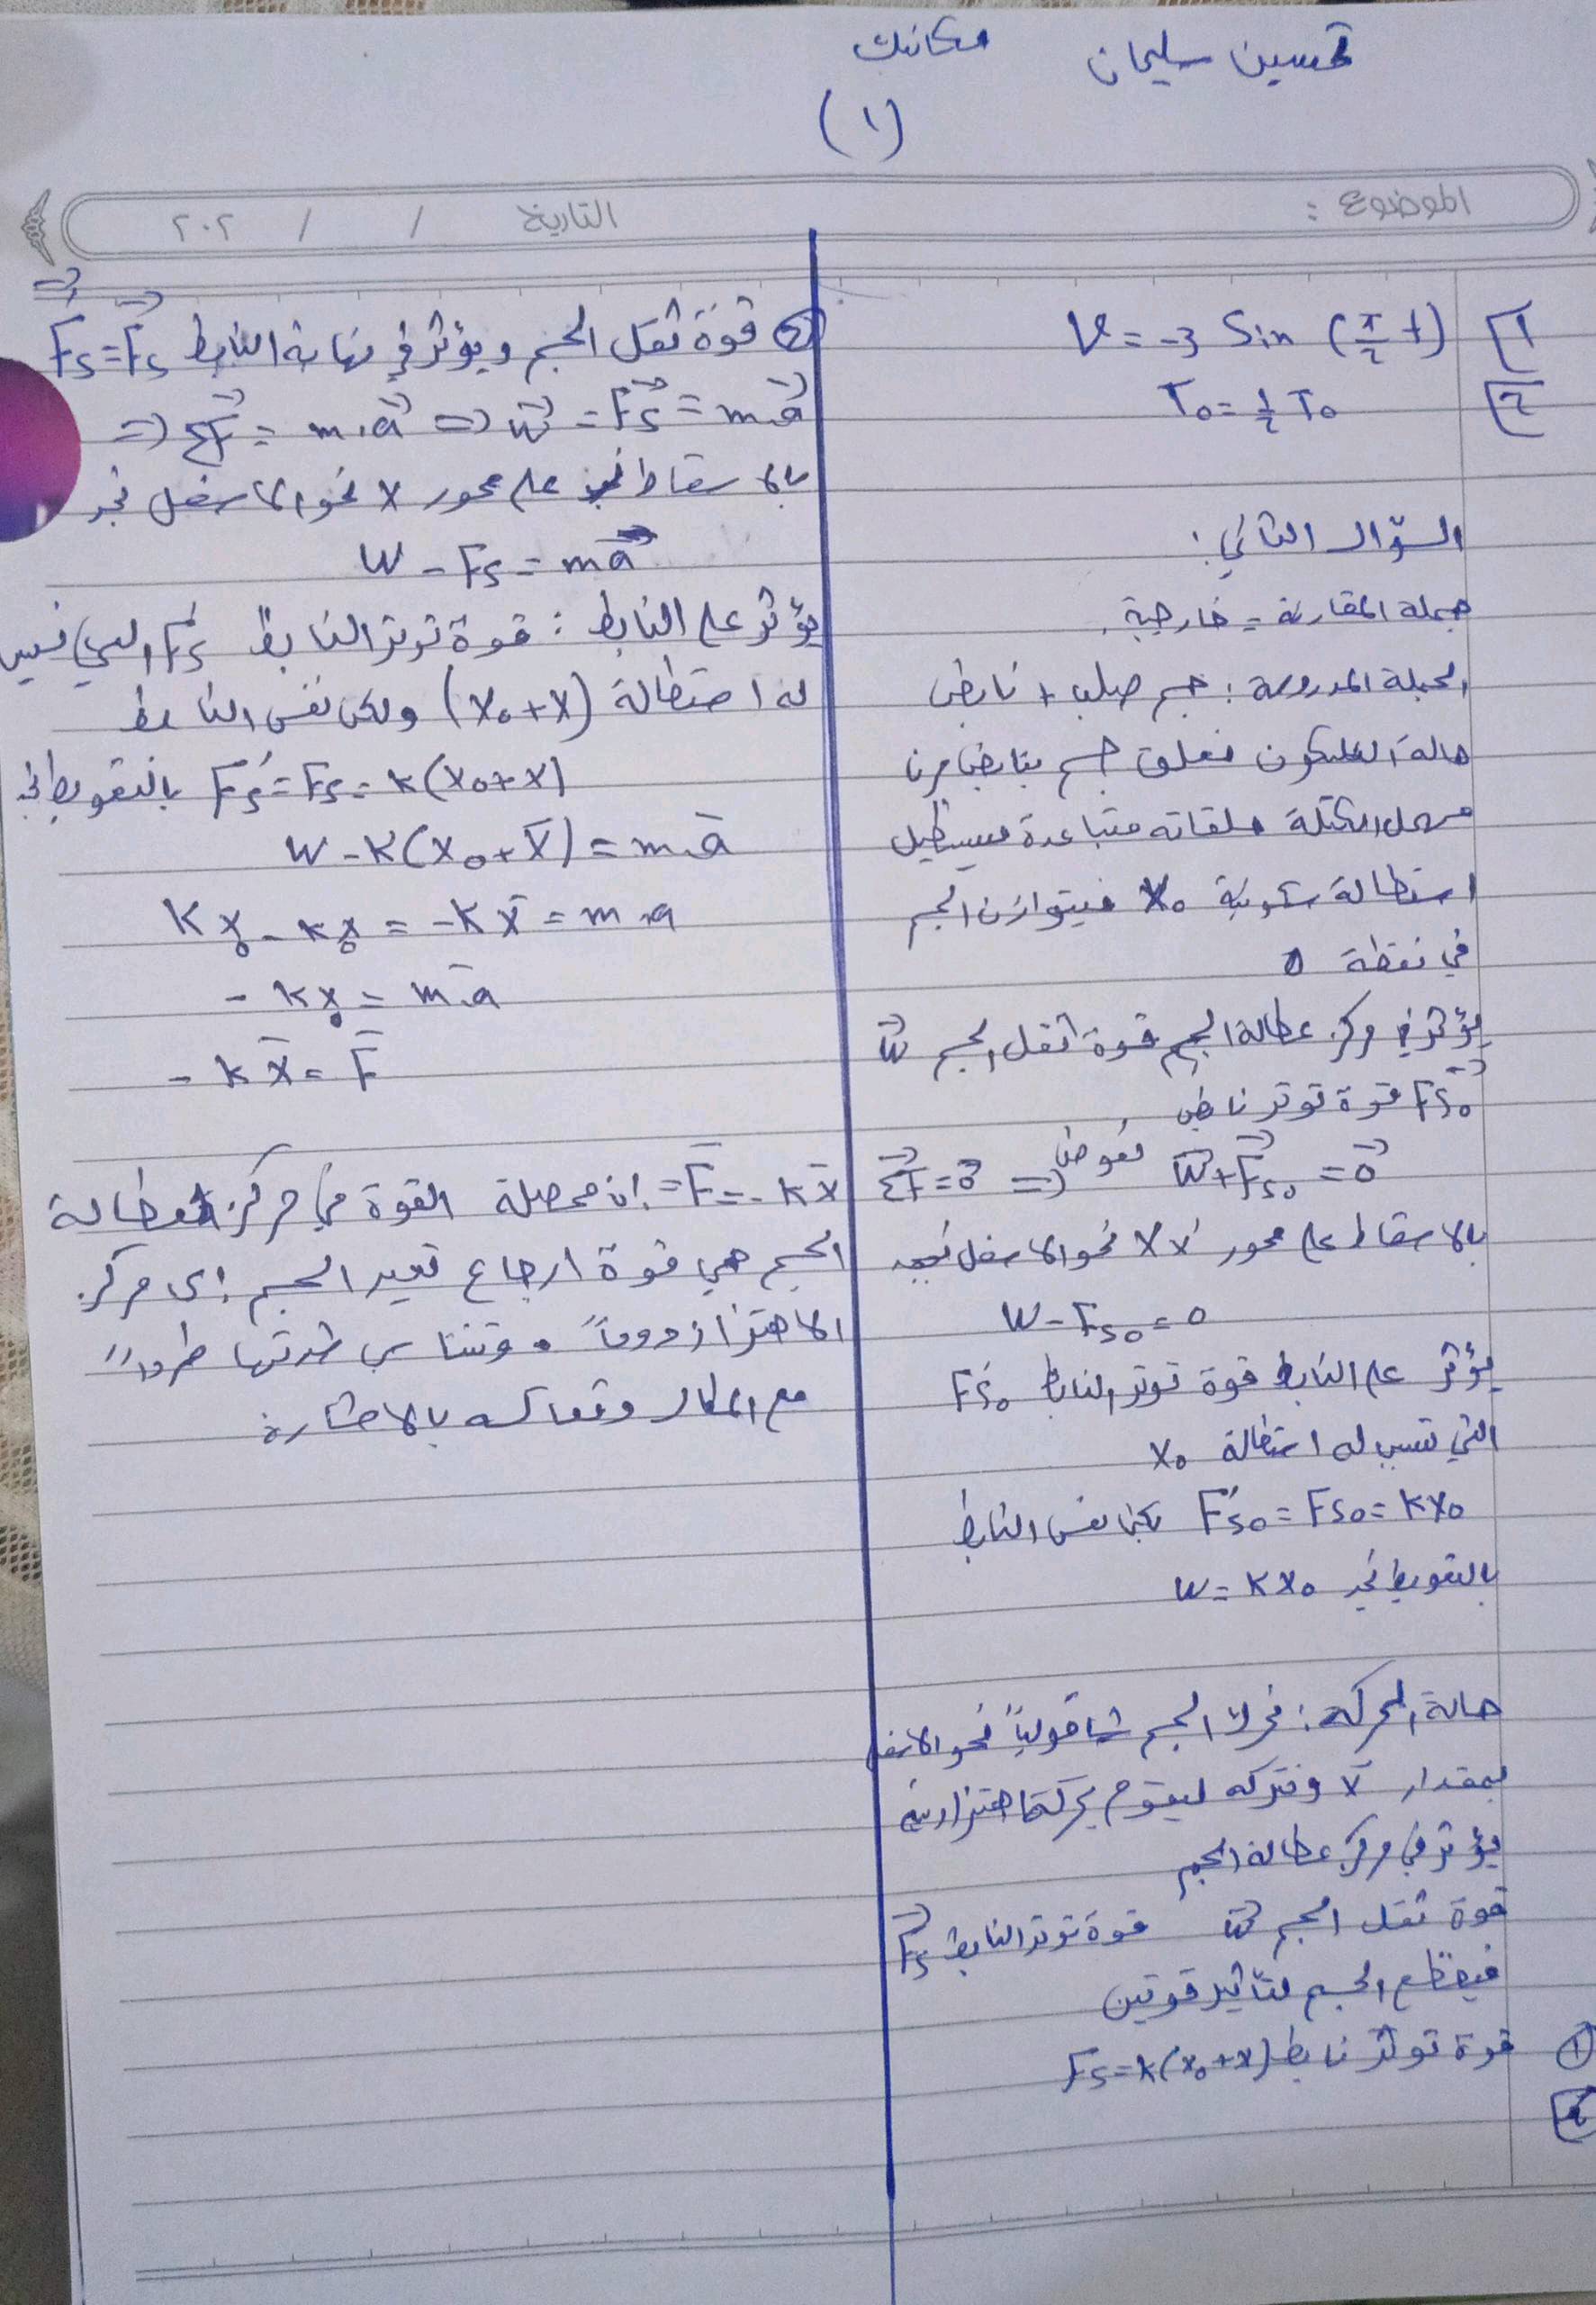 تحسين سليمان مكانيك
(١)
الموضوع :
التاريخ / / ٢٠٢
1 V = -3 Sin (π/2 t)
2 T₀ = ½ T₀
السؤال الثاني :
جملة المقارنة = خارجية .
الجملة المدروسة : جسم صلب + نابض
حالة السكون نعلق جسم بنابض مرن
مهمل الكتلة حلقاته متباعدة فيستطيل
استطالة سكونية x₀ فيتوازن الجسم
في نقطة 0
يؤثر في مركز عطالة الجسم قوة ثقل الجسم W⃗
F⃗s₀ قوة توتر نابض
ΣF⃗ = 0⃗ ⇒ نعوض W⃗ + F⃗s₀ = 0⃗
بالاسقاط على محور x'x نحو الاسفل نجد
W - Fs₀ = 0
يؤثر على النابط قوة توتر النابط F's₀
التي تسبب له استطالة x₀
F's₀ = Fs₀ = kx₀ لكن نفس النابط
بالتعويط نجد W = kx₀
حالة الحركة : نحرك الجسم شاقولياً نحو الاسفل
بمقدار x̄ ونتركه ليقوم بحركة اهتزازية
يؤثر في مركز عطالة الجسم
قوة ثقل الجسم W⃗ قوة توتر النابط F⃗s
فيخظع الجسم لتأثير قوتين
① قوة توتر نابط Fs = k(x₀+x)
② قوة ثقل الجسم ويؤثر في نهاية النابط F⃗s = F⃗'s
⇒ ΣF⃗ = m.a⃗ ⇒ W⃗ = F⃗s = m.a⃗
بالاسقاط على محور x نحو الاسفل نجد
W - Fs = ma⃗
يؤثر على النابط : قوة توتر النابط F's التي تسبب
له استطالة (x₀+x) ولكن نفس النابط
F's = Fs = k(x₀+x) بالتعويط نجد
W - k(x₀+x̄) = m.ā
kx₀ - kx₀ = -kx̄ = m.a
-kx₀ = m.ā
-kx̄ = F̄
F̄ = -kx̄ = ان محصلة القوة في مركز عطالة
الجسم هي قوة ارجاع تعيد الجسم إلى مركز
الاهتزاز دوماً وتتناسب شدتها طرداً
مع المطال وتعاكسه بالاشارة